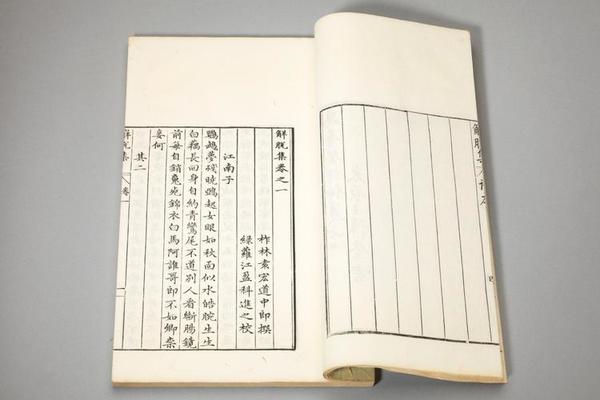 解脫集卷之一
柞林袁宏道中郎撰
綠蘿江盈科進之校
江南子
鸚鵡夢殘曉鴉起女眼如秋面似水皓腕生生
白藕長回身自約青鸞尾不道別人看斷腸鏡
前每自銷魂死錦衣白馬阿誰哥郎不如卿柰
妾何
其二
解脫集